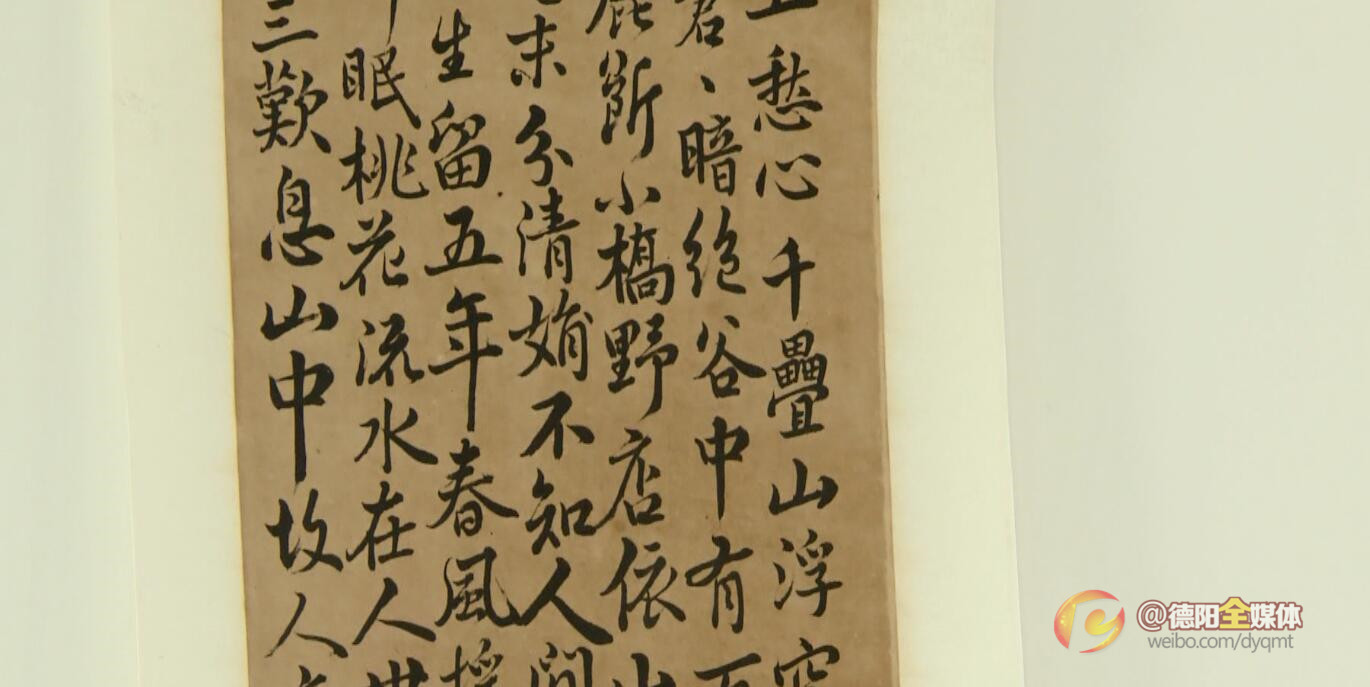 愁心千疊山浮
暗絕谷中有
斷小橋野店依
未分清妍不知人間
生留五年春風
眠桃花流水在人世
三歎息山中故人
@德阳全媒体
weibo.com/dyqmt